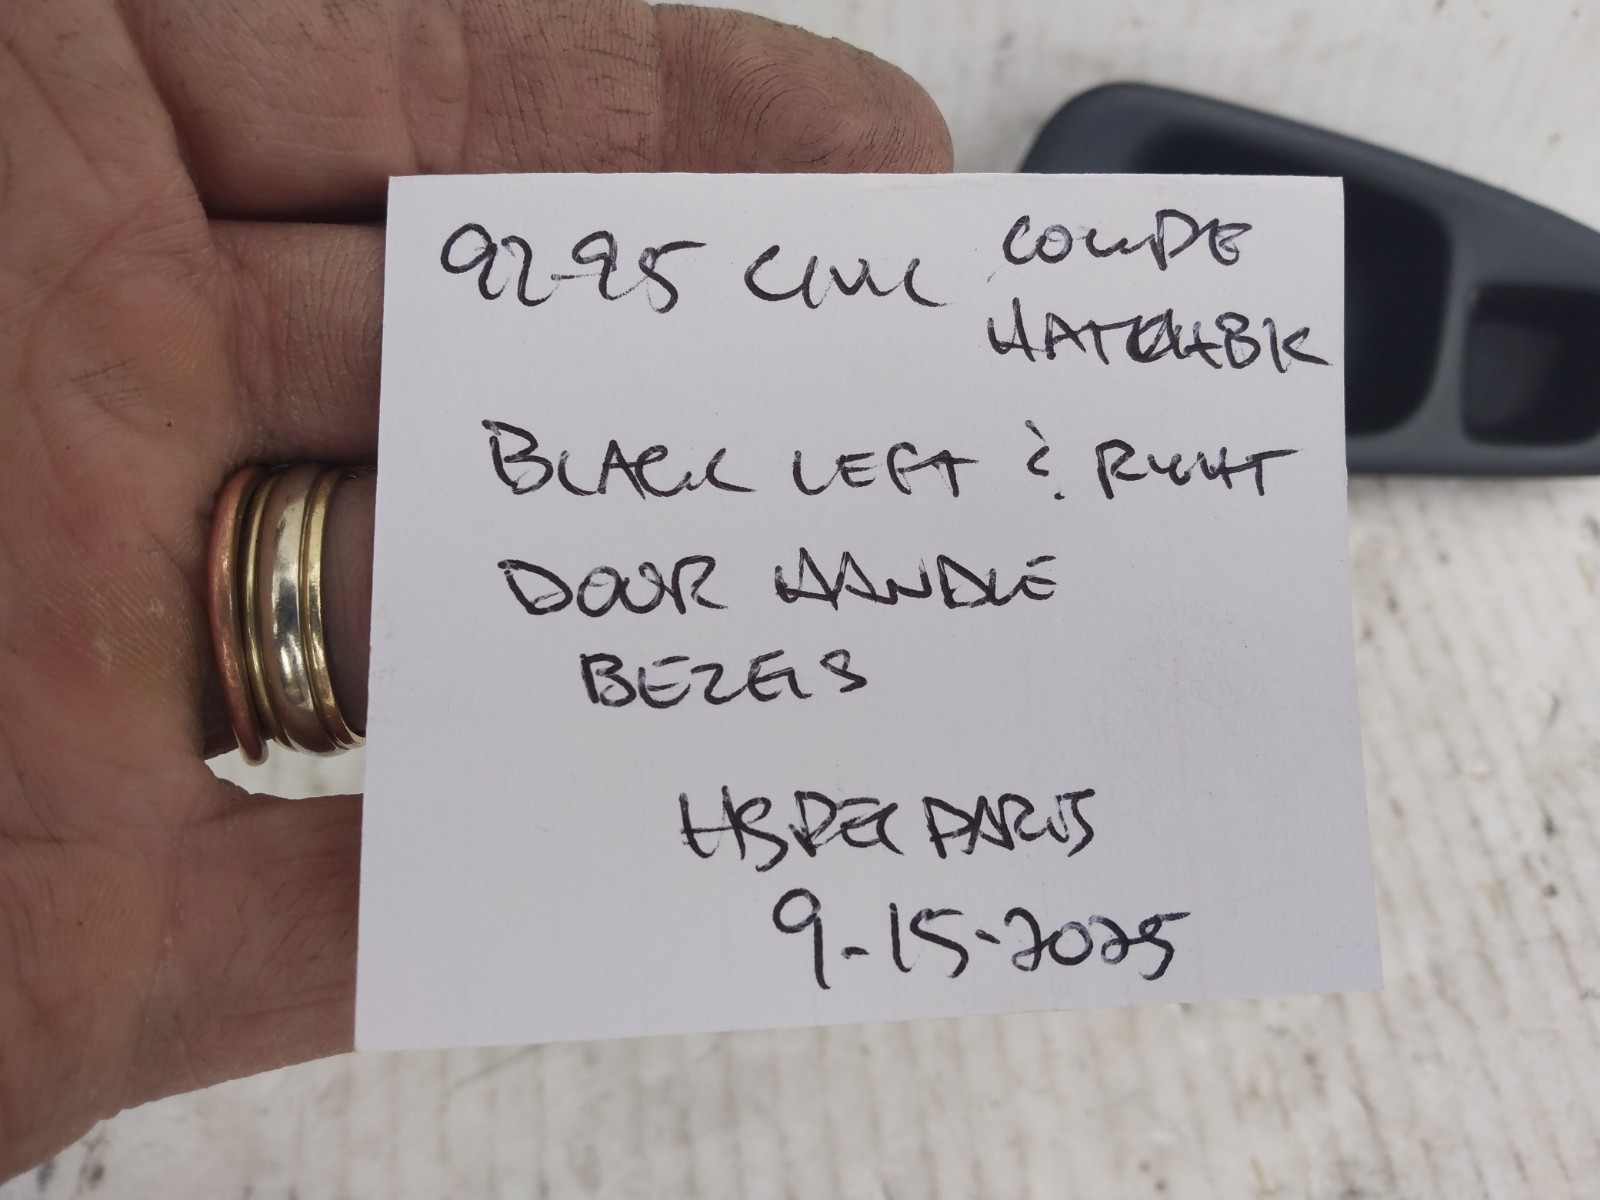 92-95 CIVIC COUPE
HATCHBK
BLACK LEFT & RIGHT
DOOR HANDLE
BEZELS
HSPEC PARTS
9-15-2025